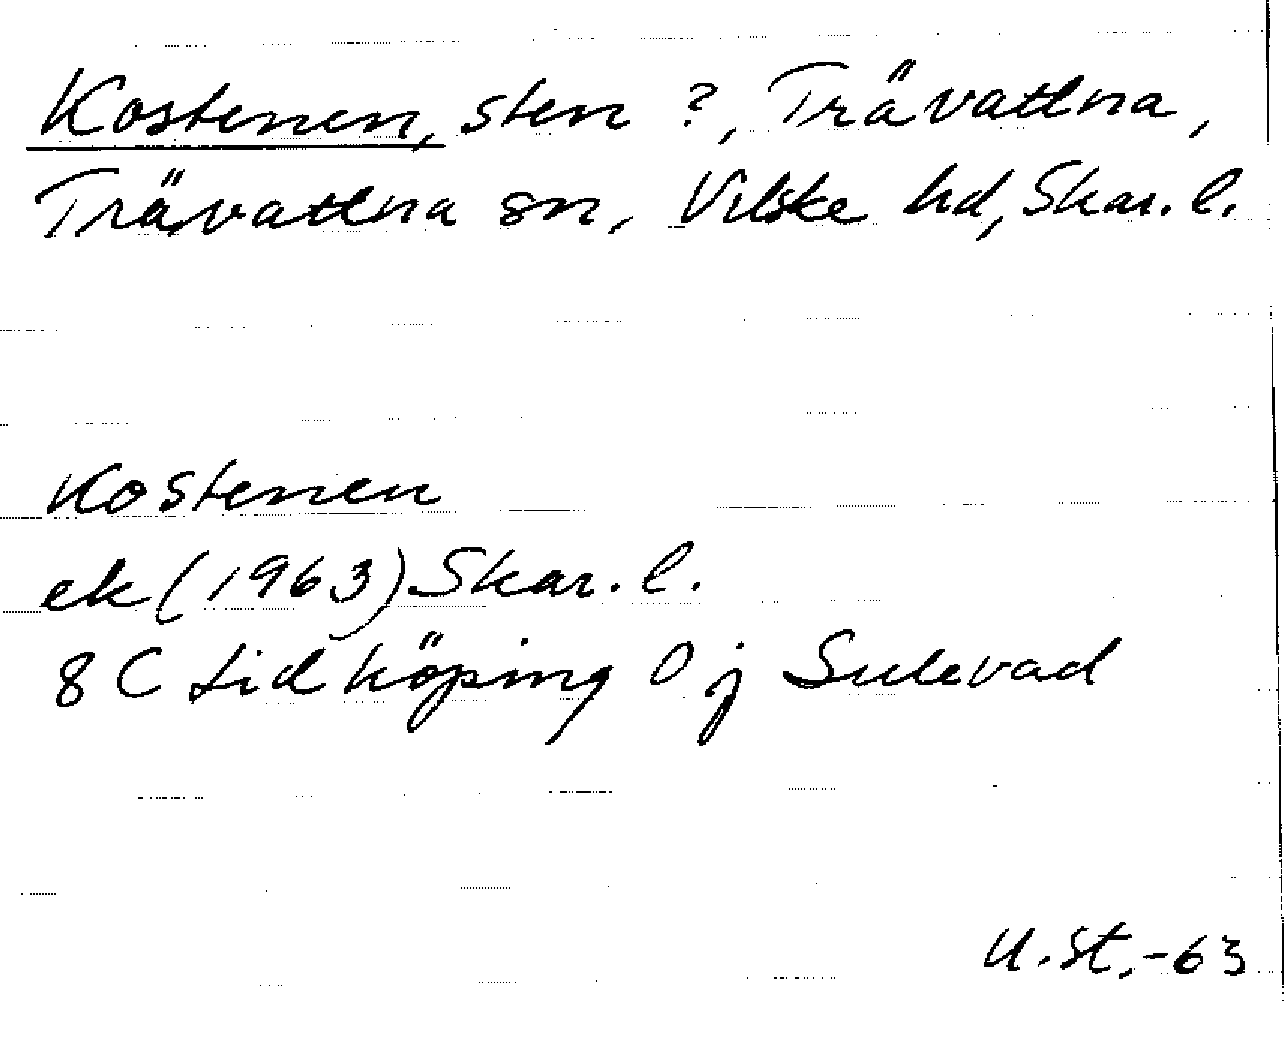 Kostenen, sten ?, Trävattna,
Trävattna sn, Vilske hd, Skar. l.
Kostenen
ek (1963) Skar. l.
8 C Lidköping 0 j Sulevad
U. St. -63